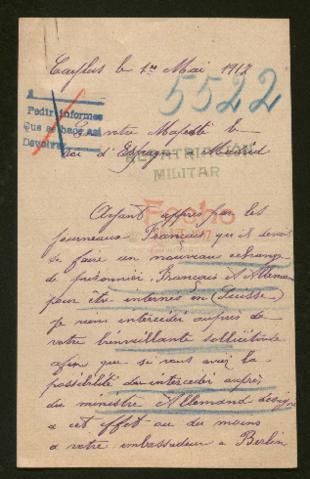 Caylus le 1er Mai 1917
5522
A
Pedir informes
Que se hace así
Devolver
A votre Majesté le
Roi d'Espagne a Madrid
REPATRIACIÓN
MILITAR
Ayant appris par les
journeaux Français qu'il devait
se faire un nouveau echange
de prisonnier Français et Allemand
pour être internés en (Suisse)
Je viens intercéder auprès de
votre bienveillante sollicitude
afin que si vous aviez la
possibilité d'en intercéder auprès
du ministre Allemand désigné
a cet effet ou du moins
a votre embassadeur a Berlin